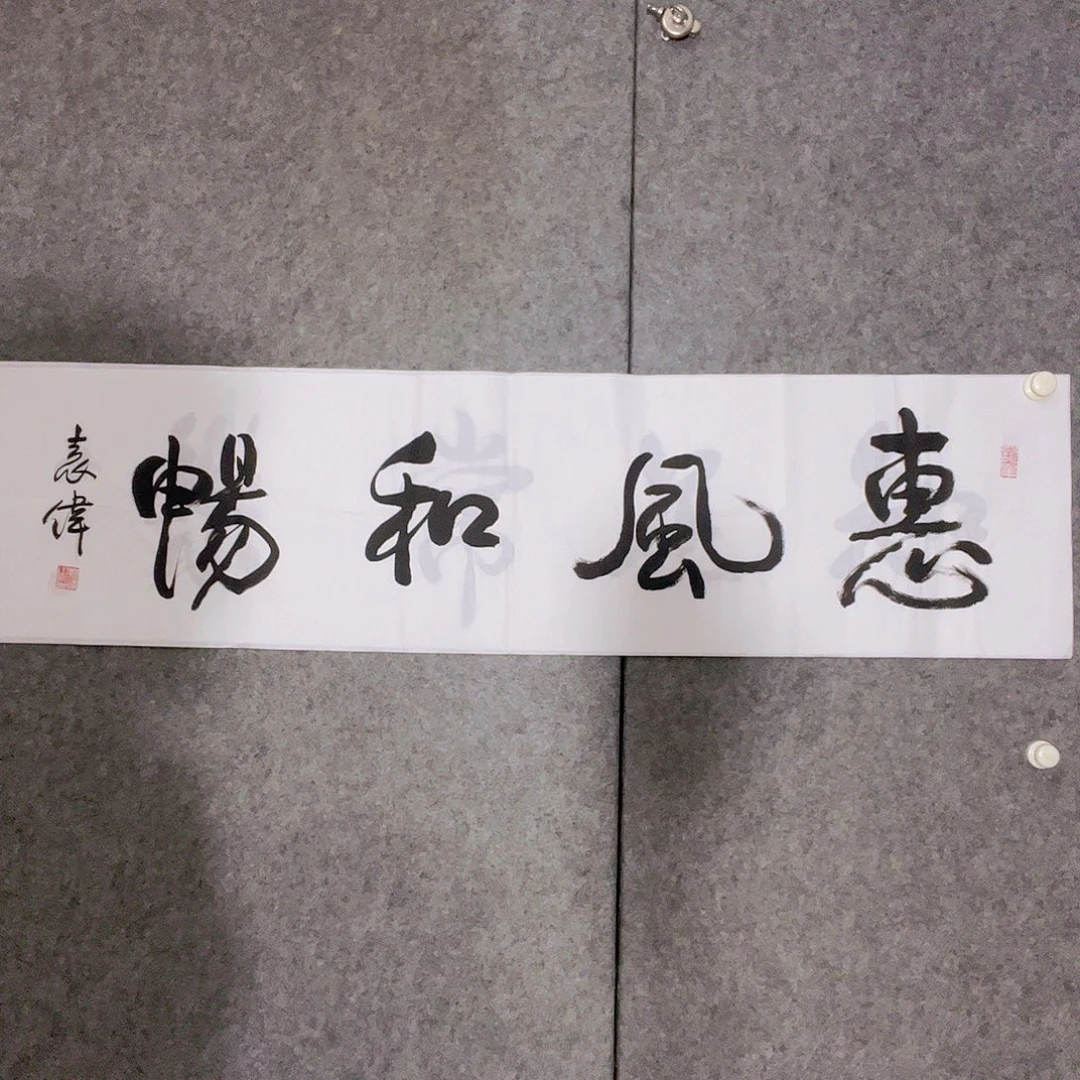 惠風和暢
袁偉